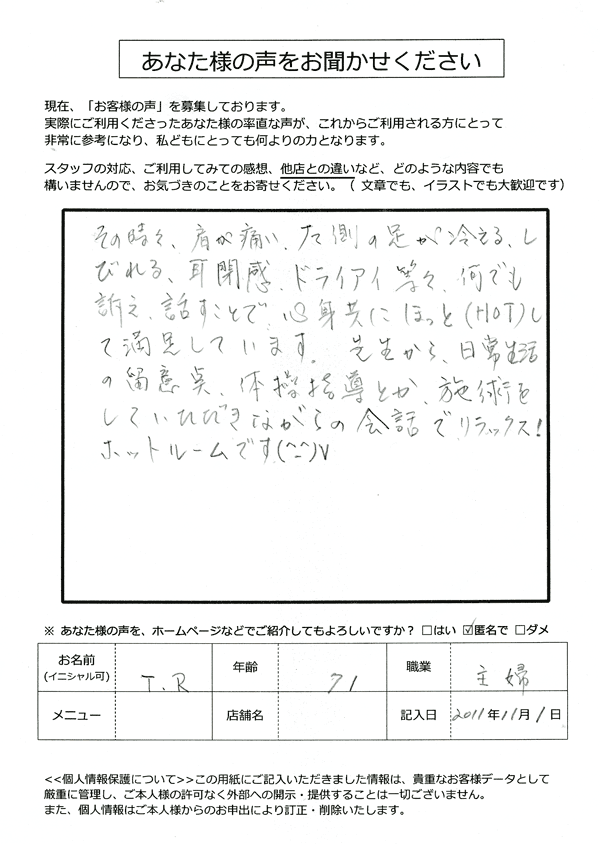 あなた様の声をお聞かせください
現在、「お客様の声」を募集しております。
実際にご利用くださったあなた様の率直な声が、これからご利用される方にとって
非常に参考になり、私どもにとっても何よりの力となります。
スタッフの対応、ご利用してみての感想、他店との違いなど、どのような内容でも
構いませんので、お気づきのことをお寄せください。（ 文章でも、イラストでも大歓迎です）
その時々、肩が痛い、左側の足が冷える、し
びれる、耳閉感、ドライアイ等々、何でも
訴え、話すことで、心身共にほっと(HOT)し
て満足しています。 先生から、日常生活
の留意点、体操指導とか、施術を
していただきながらの会話でリラックス!
ホットルームです(^-^)V
※ あなた様の声を、ホームページなどでご紹介してもよろしいですか？ □はい ☑匿名で □ダメ
お名前 (イニシャル可) T.R 年齢 71 職業 主婦
メニュー 店舗名 記入日 2011年11月1日
<<個人情報保護について>>この用紙にご記入いただきました情報は、貴重なお客様データとして
厳重に管理し、ご本人様の許可なく外部への開示・提供することは一切ございません。
また、個人情報はご本人様からのお申出により訂正・削除いたします。